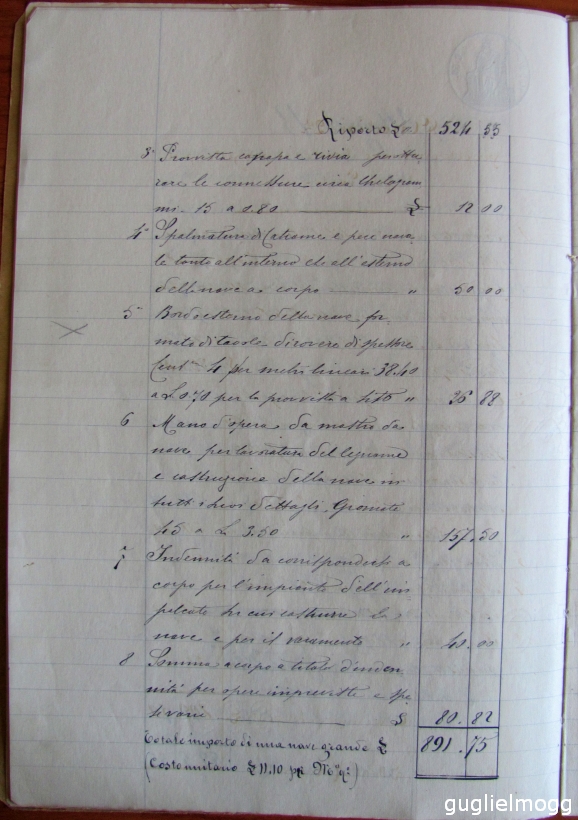 Riporto £ 524 55
3° Provvista e
rare le connetture circa Chilogram
mi 15 a 0.80 £ 12 00
4° Spalmatura di Catrame e pece nava
le tanto all'interno che all'esterno
della nave a corpo " 50 00
5° Bordo esterno della nave for
mato di tavole di rovere di spessore
Cent. 4 per metri lineari 38.40
a L. 0.70 per la provvista a " 36 88
6 Mano d'opera da mastro da
nave per lavoratura del legname
e costruzione della nave in
tutti i suoi dettagli. Giornate
45 a L 3.50 " 157.50
7 Indennità da corrispondersi a
corpo per l'impianto dell'im
palcato su cui costrurre la
nave e per il varamento " 40.00
8 Somma a corpo a titolo d'inden
nità per opere impreviste e spe
£ 80.82
Totale importo di una nave grande £ 891.75
(Costo unitario £ 11.10 pr Mri qi)
guglielmogg